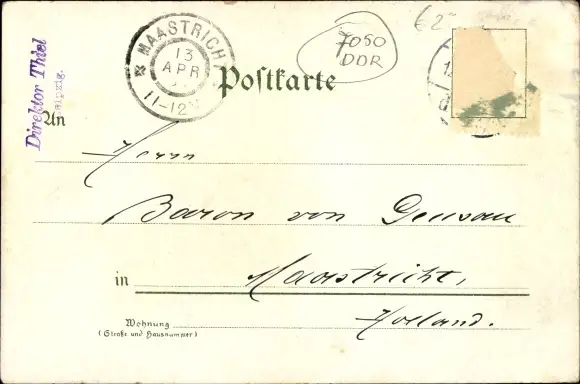 € 2-
7050
DDR
MAASTRICHT
13
APR
11-12V
Postkarte
Direktor Thiel
Leipzig.
An
Herrn
Baron von Geusau
in Maastricht,
Holland.
Wohnung
(Straße und Hausnummer)